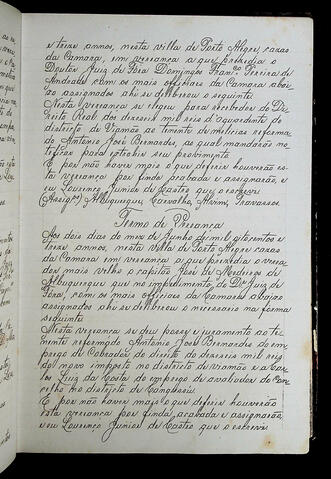 e treze annos, nesta villa de Porto Alegre, cazas
da Camara, em vereança a que prezidio o
Doutor Juiz de Fora Domingos Franc.º Pereira de
Andrade com os mais officiaes da Camara abai-
xo assignados ahi se deliberou o seguinte
Nesta vereança se elegeu para recebedor do Di-
reito Real dos dezeseis mil reis d'aguardente do
districto de Viamão ao tenente de milicias reforma-
do Antonio José Bernardes, ao qual mandarão no-
tificar para
E por não haver mais o que deferir houverão es-
ta vereança por finda acabada e assignarão, e
eu Lourenço Junior de Castro que o escrevi
(Assig.os) Albuquerque, Carvalho, Alvim, Travassos
Termo de Vereança
Aos dois dias do mez de Junho de mil oitocentos e
treze annos, nesta Villa de Porto Alegre cazas
da Camara em vereança a que prezidio o verea-
dor mais velho o capitão José de Medeiros de
Albuquerque que no impedimento do Dr. Juiz de
Fora, com os mais officiaes da Camara abaixo
assignados ahi se deliberou o necessario na forma
seguinte
Nesta vereança se deu posse e juramento ao te-
nente reformado Antonio José Bernardes do em-
prego de Cobrador do direito de dezeseis mil reis
do novo imposto no districto de Viamão e a Car-
los Luiz da Costa do emprego de avaliador do Con-
celho no districto de
E por não haver mais o que deferir houverão
esta vereança por finda, acabada e assignarão,
e eu Lourenço Junior de Castro que o escrevi